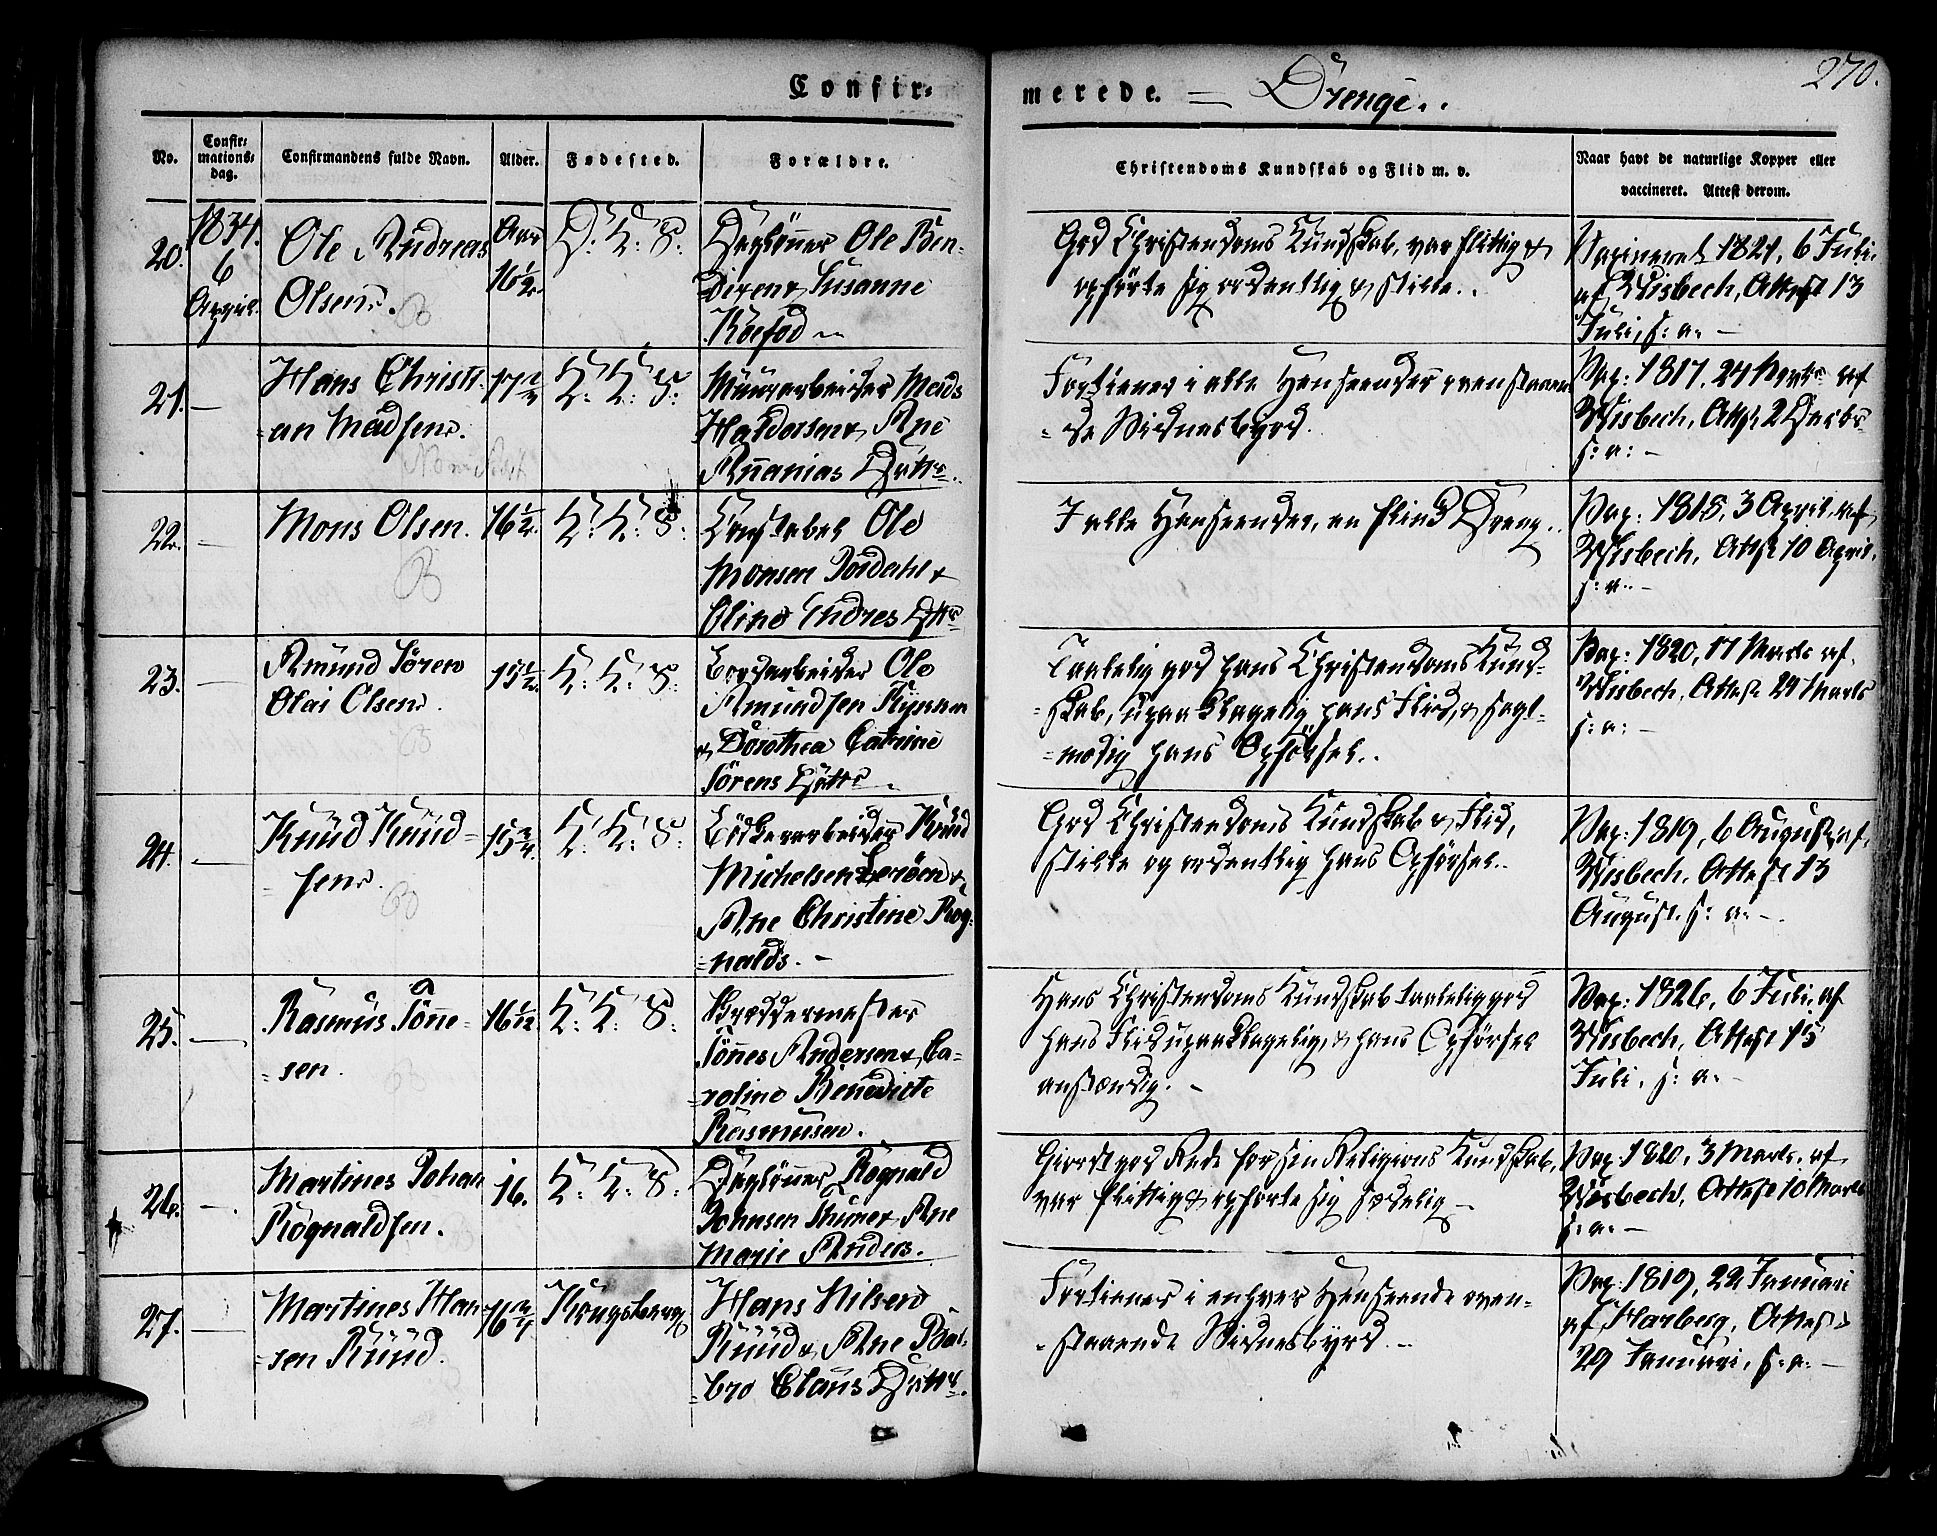 270.
Confir- merede. — Drenge..
No.
Confir-
mations-
dag.
Confirmandens fulde Navn.
Alder.
Fødested.
Forældre.
Christendoms Kundskab og Flid m. v.
Naar havt de naturlige Kopper eller
vaccineret. Attest derom.
20.
1834.
6
April.
Ole Andreas
Olsen.
Aar
16½.
D. K. S.
Ole Ben-
Susanne
Koefod
God Christendoms Kundskab, var flittig &
opførte sig ordentlig & stille.
Vaxineret 1821, 6 Juli
af Wisbech, Attest 13
Juli, s: a: -
21. —
Hans Christi-
-an Madsen.
17½
K: K: S:
Muurarbeider Mads
Haldorsen & Ane
Ananias Dottr.
Fortiener i alle Henseender ovenstaaen-
-de Vidnesbyrd.
Vax: 1817, 24 Marts af
Wisbech, Att: 2 Decbr
s: a: -
22. —
Mons Olsen.
16½.
K: K: S:
Constabel Ole
Monsen Dordahl &
Oline Endres Dttr
I alle Henseender, en flink Dreng.
Vax: 1818, 3 April af
Wisbech, Attest 10 April.
s: a: -
23. —
Amund Søren
Olai Olsen.
15½.
K: K: S:
Bordarbeider Ole
Amundsen
& Dorothea Catrine
Sørens Dottr.
Taalelig god hans Christendoms Kund-
-skab, upaaklagelig hans Flid, & sagt-
-modig hans Opførsel.
Vax: 1820, 17 Marts af
Wisbech, Attest 24 Marts
s: a: -
24. —
Knud Knud-
-sen.
15¾.
K: K: S:
Bødkerarbeider Knud
Michelsen Lerøen &
Ane Christine Rog-
-nalds. -
God Christendoms Kundskab & Flid,
stille og ordentlig hans Opførsel.
Vax: 1819, 6 August af
Wisbech, Attest 13
August. s: a: -
25. —
Rasmus Tønne-
-sen.
16 1/12.
K: K: S:
Tønnes Andersen & Ca-
-roline Benedicte
Rasmusen.
Hans Christendoms Kundskab taalelig god
hans Flid upaaklagelig, & hans Opførsel
anstændig. -
Vax: 1826, 6 Juli af
Wisbech, Attest 15
Juli, s: a: -
26. -
Martines Johan
Rognaldsen.
16.
K: K: S:
Rognald
Johnsen & Ane
Marie Anders.
Giorde god Rede for sin Religions Kundskab,
var flittig & opførte sig sædelig -
Vax: 1820, 3 Marts af
Wisbech, Attest 10 Marts
s: a: -
27. —
Martines Han-
-sen Ruud.
16¾
Kongsberg
Hans Nilsen
Ruud & Ane Bal-
-bro Claus Dottr.
Fortiener i enhver Henseende oven-
-staaende Vidnesbyrd. -
Vax: 1819, 22 Januari
af Harberg, Attest
29 Januari, s: a: -